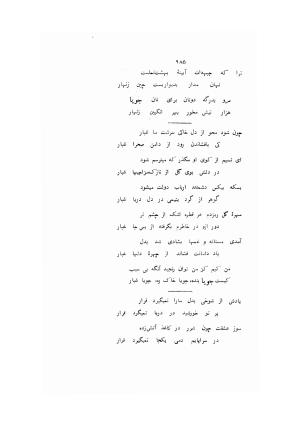 ۹۸۵
ترا که چهره‌ات آیینهٔ بهشت‌نماست
نهان مدار بدیدارست چین زنهار
مرو بدرگه دونان برای نان جویا
هزار نیش مخور بهر انگبین زنهار
چون شود محو از دل خاکی سرشت ما غبار
کی بافشاندن رود از دامن صحرا غبار
ای نسیم از کوی او مگذر که میترسم شود
در دلش بوی گل از نازک‌مزاجیها غبار
بسکه بیکس دشمنند ارباب دولت میشود
گوهر از گرد یتیمی در دل دریا غبار
میبرد هر قطره اشک از چشم تر
دور از در خاطر گرفته از ما غبار
آمدی مستانه و غمها بشادی شد بدل
باد دامانت فشاند از چهرهٔ دنیا غبار
من کیم کز من توان رنجید آنگه بی سبب
کیست جویا بنده، جویا خاک ره، جویا غبار
یادش از شوخی بدل ما را نمیگیرد قرار
پرتو خورشید در دریا نمیگیرد قرار
سوز عشقت چون شرر در کاغذ آتش‌زده
در سراپایم دمی یکجا نمیگیرد قرار